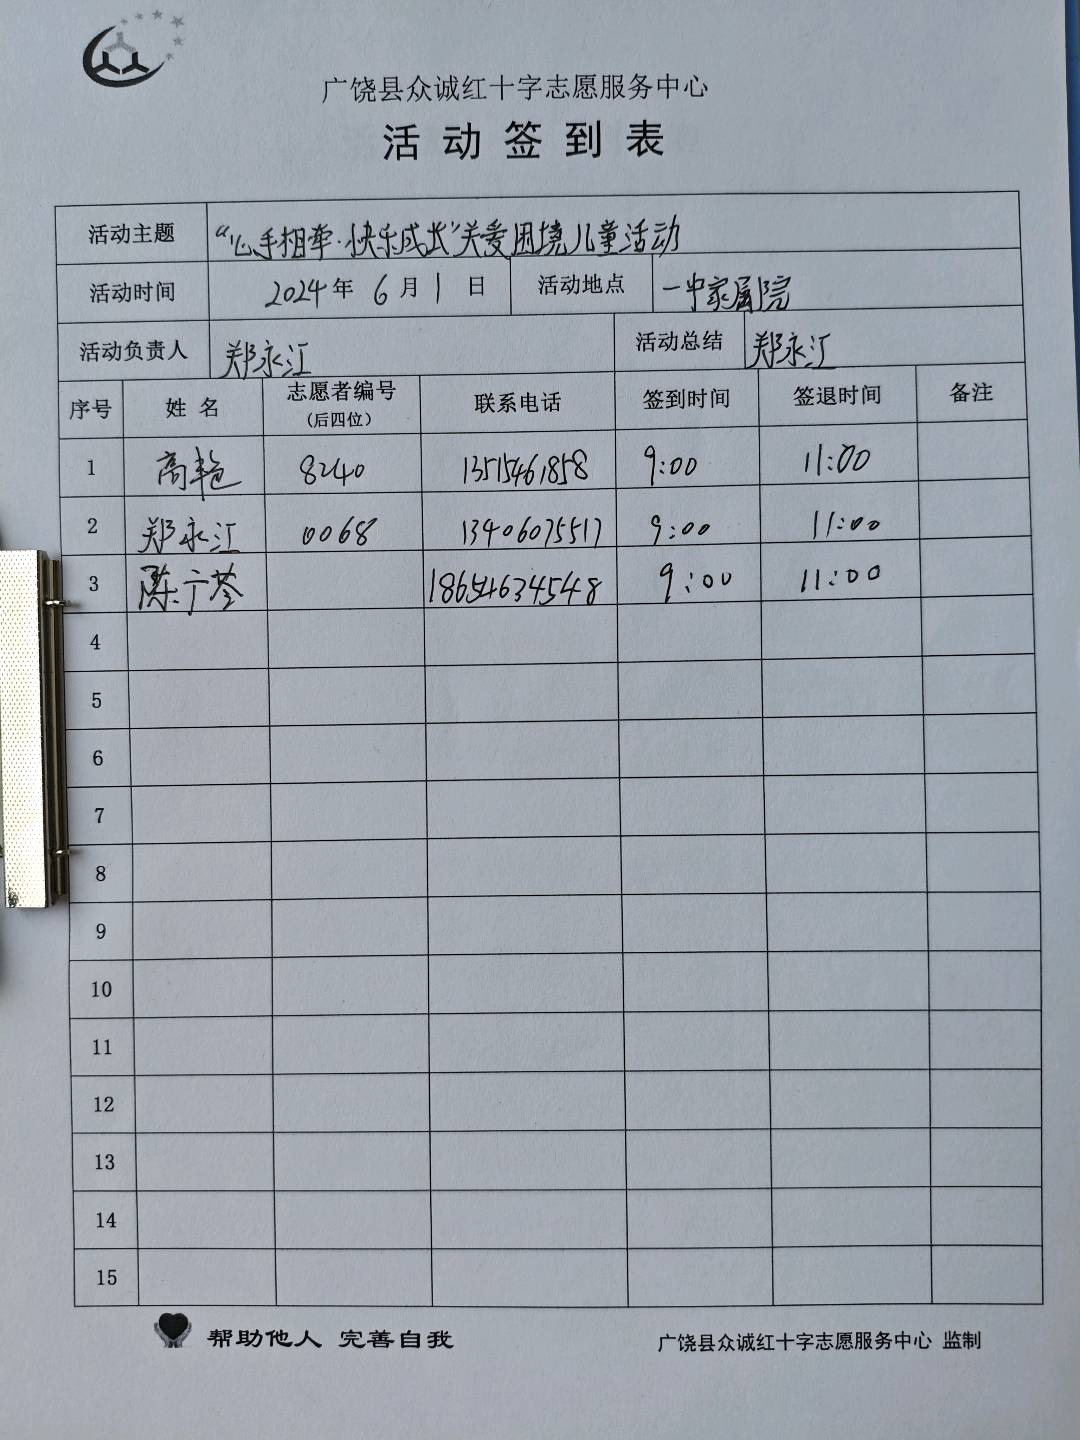 广饶县众诚红十字志愿服务中心
活动签到表
活动主题 “心手相牵·快乐成长”关爱困境儿童活动
活动时间 2024年6月1日 活动地点 一中家属院
活动负责人 郑永江 活动总结 郑永江
序号 姓名 志愿者编号（后四位） 联系电话 签到时间 签退时间 备注
1 高艳 8240 13515461858 9:00 11:00
2 郑永江 0068 13406075517 9:00 11:00
3 陈广苓 18654634548 9:00 11:00
4
5
6
7
8
9
10
11
12
13
14
15
帮助他人 完善自我 广饶县众诚红十字志愿服务中心 监制